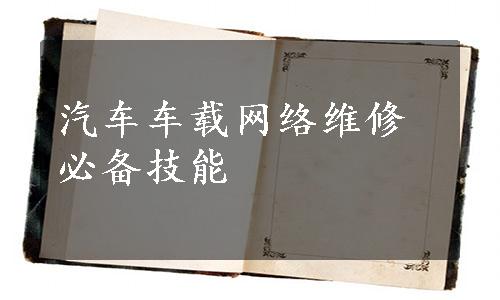 汽车车载网络维修
必备技能